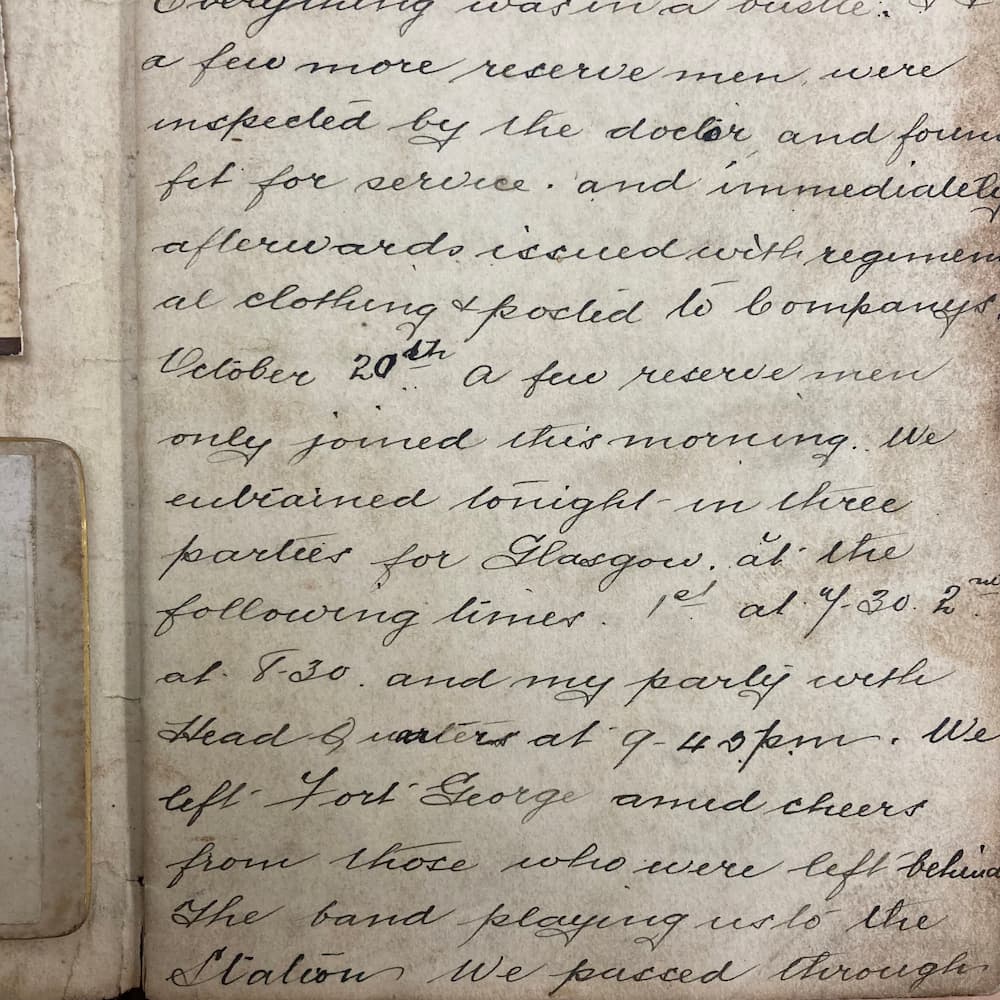 Everything was in a bustle.
a few more reserve men were
inspected by the doctor and foun
fit for service. and immediately
afterwards issued with regimen
al clothing & posted to Companys.
October 20th A few reserve men
only joined this morning. We
entrained tonight in three
parties for Glasgow. at the
following times. 1st at 7-30. 2nd
at 8-30. and my party with
Head Quarters at 9-45 pm. We
left Fort George amid cheers
from those who were left behind
The band playing us to the
Station We passed through